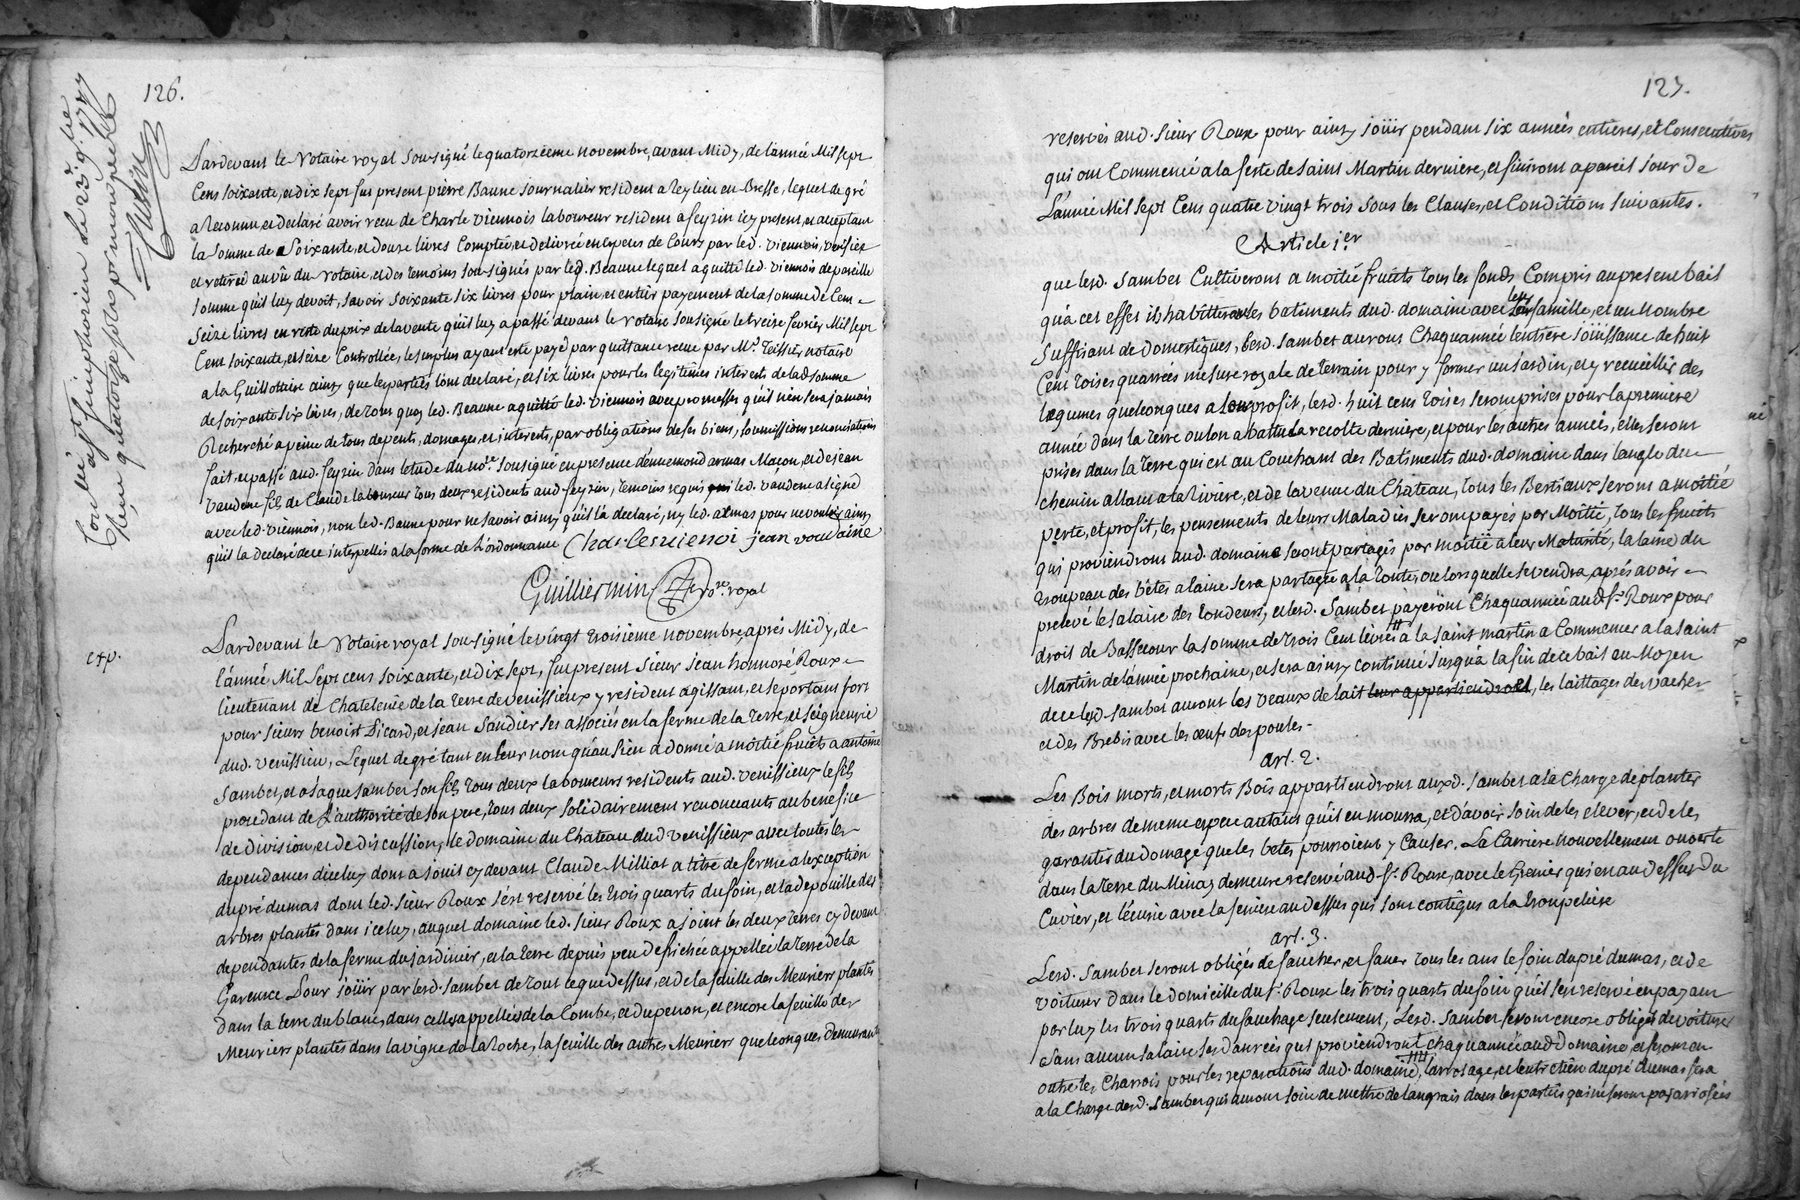 126.
Con. lé a St Simphorien le 23e 9.bre 1777
Reçu quatorze sols
Pardevant le Notaire royal Sousigné le quatorzieme novembre, avant Midy, de l'année Mil sept
Cens soixante, et dix sept fut present pierre Baune Journalier resident a Neylieu en Bresse, lequel de gré
a Reconnu, et declaré avoir receu de Charle Viennois laboureur resident a feyzin icy present, et acceptant
la Somme de Soixante, et douze livres Comptée, et delivrée en especes de Cours par led. Viennois, verifiée
et retirée au vû du Notaire, et des temoins sousignés par led. Beaune lequel a quitté led. Viennois de pareille
somme qu'il luy devoit, savoir soixante six livres pour plain, et entier payement de la somme de Cent
Seize livres en reste du prix de la vente qu'il luy a passé devant le Notaire Sousigné le treize fevrier Mil sept
Cent soixante, et seize Controllée, le surplus ayant esté payé par quittance receue par Me. Teissier notaire
a la Guillottiere ainsy que les parties l'ont declaré, et six livres pour les legitimes interests de lad. somme
de soixante six livres, de tous quoy led. Beaune a quitté led. Viennois avec promesses qu'il n'en sera jamais
Recherché a peine de tous depents, domages, et interests, par obligations de ses biens, soumissions renonciations
fait, et passé aud. feyzin dans l'etude du no.re sousigné en presence d'ennemond armas Maçon, et de jean
Vaudene fils de Claude laboureur tous deux residents aud. feyzin, temoins requis led. Vaudene a signé
avec led. Viennois, non led. Baune pour ne savoir ainsy qu'il l'a declaré, ny led. armas pour ne vouloir ainsy
qu'il la declaré de ce interpellés a la forme de l'ordonnance Charles vienoi jean voudaine
Guilliermin no.re royal
exp.
Pardevant le Notaire royal Sousigné le vingt troisieme novembre, après Midy, de
l'année Mil Sept cens soixante, et dix sept, fut present Sieur jean honnoré Roux
lieutenant de Chatelenie de la terre de venissieux y resident agissant, et se portant fort
pour sieurs benoist Sicard, et jean Sandier ses associés en la ferme de la terre, et Seigneurie
dud. venissieu, Lequel de gré tant en leur nom qu'au Sien a donné a moitié fruits a antoine
Sambet, et a Jaque Sambet Son fils tous deux laboureurs residents aud. venissieux le fils
procedant de L'authorité de son pere, tous deux solidairement renonceants au benefice
de division, et de discussion, le domaine du Chateau dud venissieux avec toutes les
dependances d'iceluy dont a jouit cy devant Claude Milliat a titre de ferme a l'exception
du pré du mas dont led. Sieur Roux s'est reservé les trois quarts du foin, et la depouille des
arbres plantés dans iceluy, auquel domaine led. Sieur Roux a joint les deux terres cy devant
dependantes de la ferme du jardinier, et la terre depuis peu defrichée appellée la terre de la
Garence Pour joüir par lesd. Sambet de tout ce que dessus, et de la feuille des Meuriers plantés
dans la terre du blanc, dans celles appellées de la Combe, et du peron, et encore la feuille des
Meuriers plantés dans la vigne de la Roche, la feuille des autres Meuriers quelconques demeurant
127.
reservés aud. Sieur Roux pour ainsy joüir pendant six années entieres, et Consecutives
qui ont Commencé a la feste de Saint Martin derniere, et finiront a pareil jour de
L'année Mil sept Cens quatre vingt trois sous les Clauses, et Conditions suivantes.
Article 1.er
que lesd. Sambet Cultiveront a moitié fruits tous les fonds Compris au present bail
qu'a cet effet ils habitteront les batiments dud. domaine avec leur famille, et un Nombre
Suffisant de Domestiques, lesd. Sambet auront Chaquannée l'entiere joüissance de huit
Cent toises quarrées mesure royale de terrain pour y former un jardin, et y recueillir des
legumes quelconques a leur profit, lesd. huit cens toises seront prises pour la premiere
année dans la terre ou lon a battu la recolte derniere, et pour les autres années, elles seront
prises dans la terre qui est au Couchant des Batiments dud. domaine dans l'angle du
chemin allant a la riviere, et de lavenue du Chateau, tous les Bestiaux seront a moitié
perte, et profit, les pensements de leurs Maladies seront payés par Moitié, tous les fruits
qui proviendront aud. domaine seront partagés par moitié a leur Maturité, la laine du
troupeau des bêtes a laine sera partagée a la tonte, ou lorsquelle se vendra, après avoir
prelevé le salaire des tondeurs, et lesd. Sambet payeront Chaquannée aud. Sr. Roux pour
droit de Bassecour la somme de trois Cent livres a la saint martin a Commencer a la saint
Martin de l'année prochaine, et sera ainsy continué jusqu'a la fin de ce bail au Moyen
de ce lesd. Sambet auront les veaux de lait leur appartiendront, les laittages des vaches
et des Brebis avec les œufs des poules.
art. 2.
Les Bois morts, et morts Bois appartiendront auxd. Sambet a la Charge de planter
des arbres de meme espece autant qu'il en mourra, et d'avoir soin de les elever, et de les
garantir du domage que les betes pourroient y Causer. La Carriere nouvellement ouverte
dans la terre du Minay demeure reservé aud. Sr. Roux, avec le Grenier qui est au dessus du
Cuvier, et l'écurie avec la feniere au dessus qui sont contigus a la troupeliere
art. 3.
Lesd. Sambet seront obligés de faucher, et faner tous les ans le foin du pré du mas, et de
voiturer dans le domicille du Sr. Roux les trois quarts du foin qu'il s'est reservé en payant
par luy les trois quarts du fauchage seulement, Lesd. Sambet seront encore obligés de voiturer
sans aucun salaire les danrées qui proviendront chaquannée aud. Domaine, et feront en
outre les Charrois pour les reparations dud. domaine, l'arrosage, et l'entretien du pré du mas sera
a la Charge desd. Sambet qui auront soin de mettre de l'angrais dans les parties qui ne seront pas arrosées